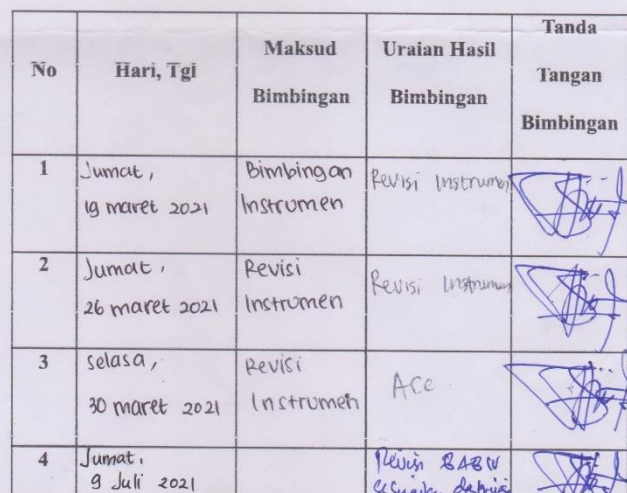 No
Hari, Tgl
Maksud
Bimbingan
Uraian Hasil
Bimbingan
Tanda
Tangan
Bimbingan
1
Jumat,
19 maret 2021
Bimbingan
Instrumen
Revisi Instrumen
2
Jumat,
26 maret 2021
Revisi
Instrumen
Revisi Instrumen
3
selasa,
30 maret 2021
Revisi
Instrumen
Acc
4
Jumat,
9 Juli 2021
Revisi BAB IV